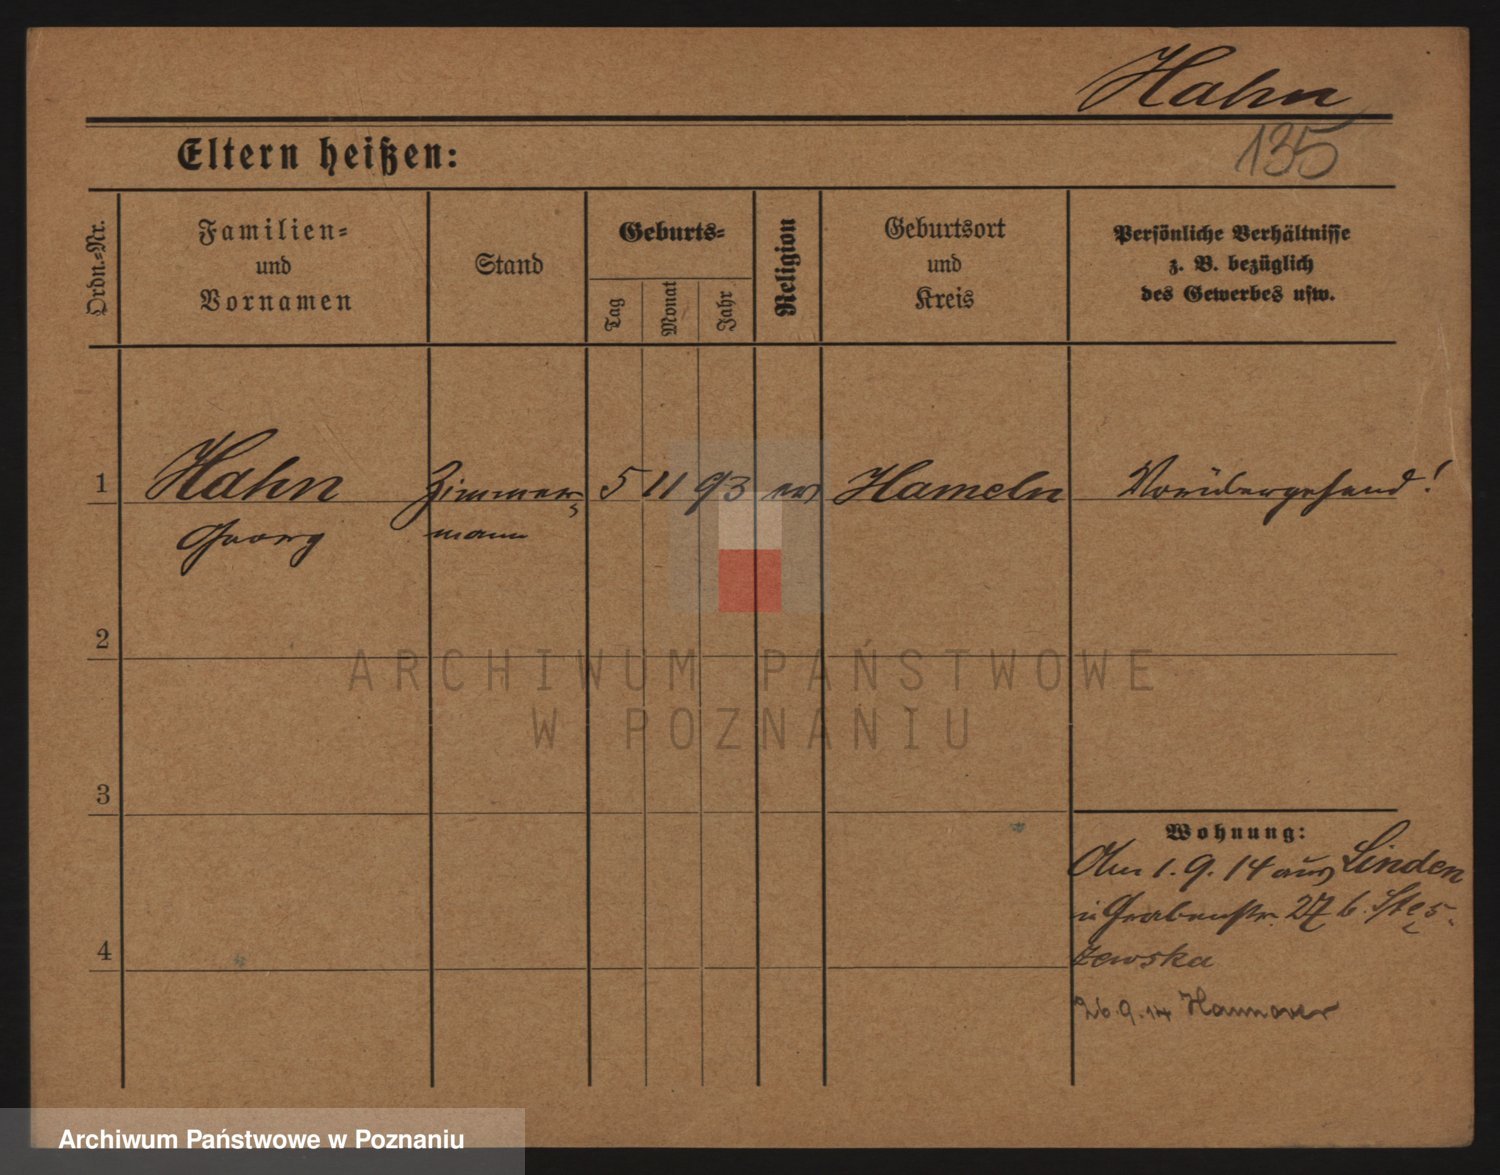 Hahn
135
Eltern heißen:
Ordn.-Nr.
Familien-
und
Vornamen
Stand
Geburts-
Tag
Monat
Jahr
Religion
Geburtsort
und
Kreis
Persönliche Verhältnisse
z. B. bezüglich
des Gewerbes usw.
1
Hahn Zimmer- 5 11 93 ev Hameln Vorübergehend!
Georg mann
2
ARCHIWUM PAŃSTWOWE
W POZNANIU
3
Wohnung:
Am 1.9.14 aus Linden
in Grabenstr. 27 b. Stę
zewska
4
26.9.14 Hannover
Archiwum Państwowe w Poznaniu